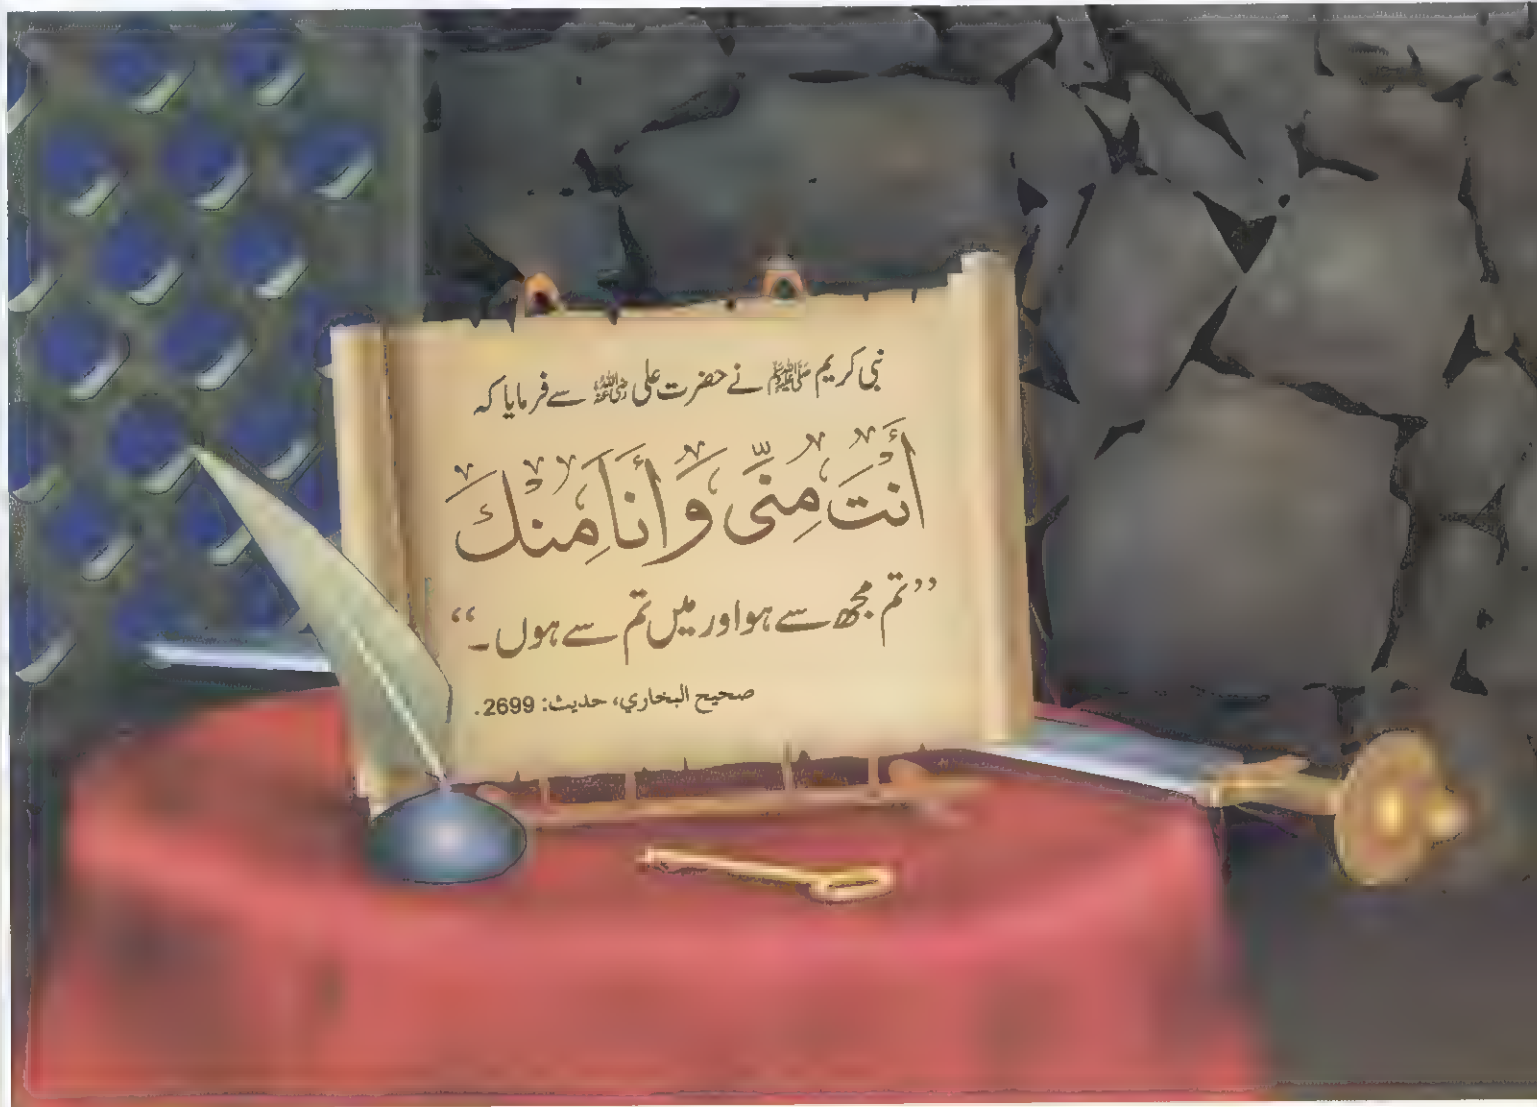 نبی کریم ﷺ نے حضرت علی رضی اللہ عنہ سے فرمایا کہ
أَنْتَ مِنِّي وَأَنَا مِنْكَ
”تم مجھ سے ہو اور میں تم سے ہوں۔“
صحيح البخاري، حديث: 2699.